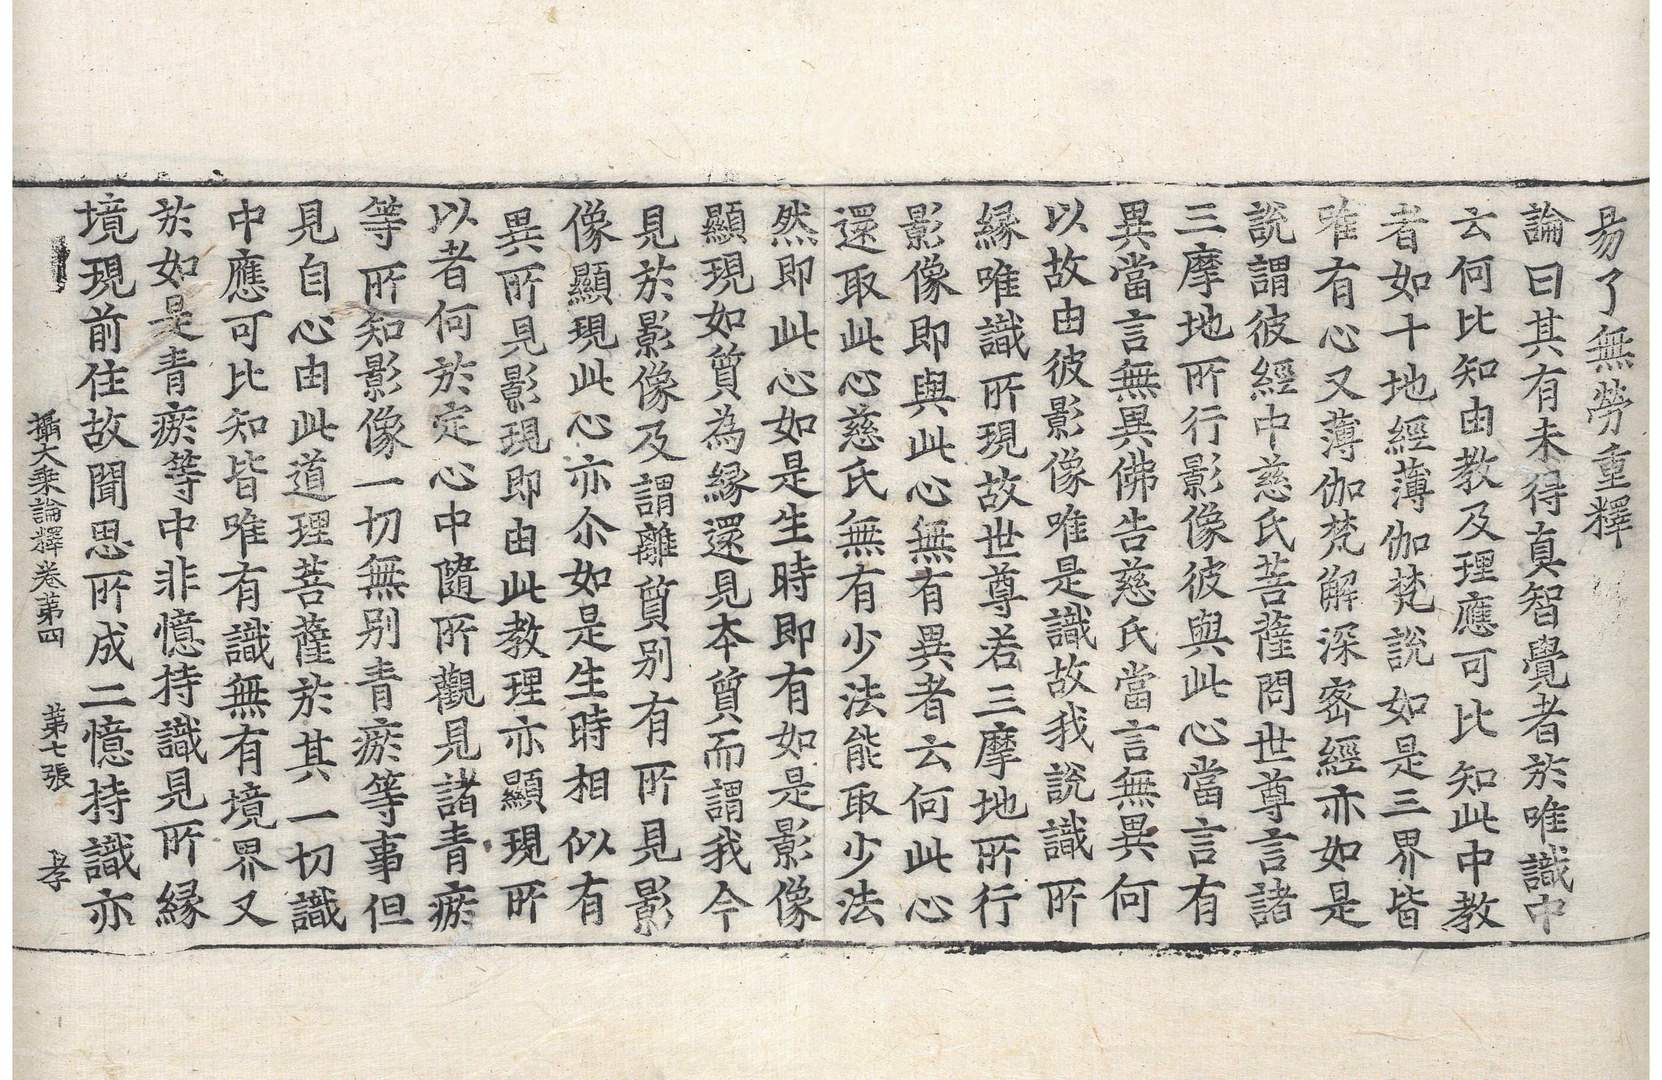 易了無勞重釋
論曰其有未得真智覺者於唯識中
云何比知由教及理應可比知此中教
者如十地經薄伽梵說如是三界皆
唯有心又薄伽梵解深密經亦如是
說謂彼經中慈氏菩薩問世尊言諸
三摩地所行影像彼與此心當言有
異當言無異佛告慈氏當言無異何
以故由彼影像唯是識故我說識所
緣唯識所現故世尊若三摩地所行
影像即與此心無有異者云何此心
還取此心慈氏無有少法能取少法
然即此心如是生時即有如是影像
顯現如質為緣還見本質而謂我今
見於影像及謂離質別有所見影
像顯現此心亦尒如是生時相似有
異所見影現即由此教理亦顯現所
以者何於定心中隨所觀見諸青瘀
等所知影像一切無別青瘀等事但
見自心由此道理菩薩於其一切識
中應可比知皆唯有識無有境界又
於如是青瘀等中非憶持識見所緣
境現前住故聞思所成二憶持識亦
攝大乘論釋卷第四 第七張 孝